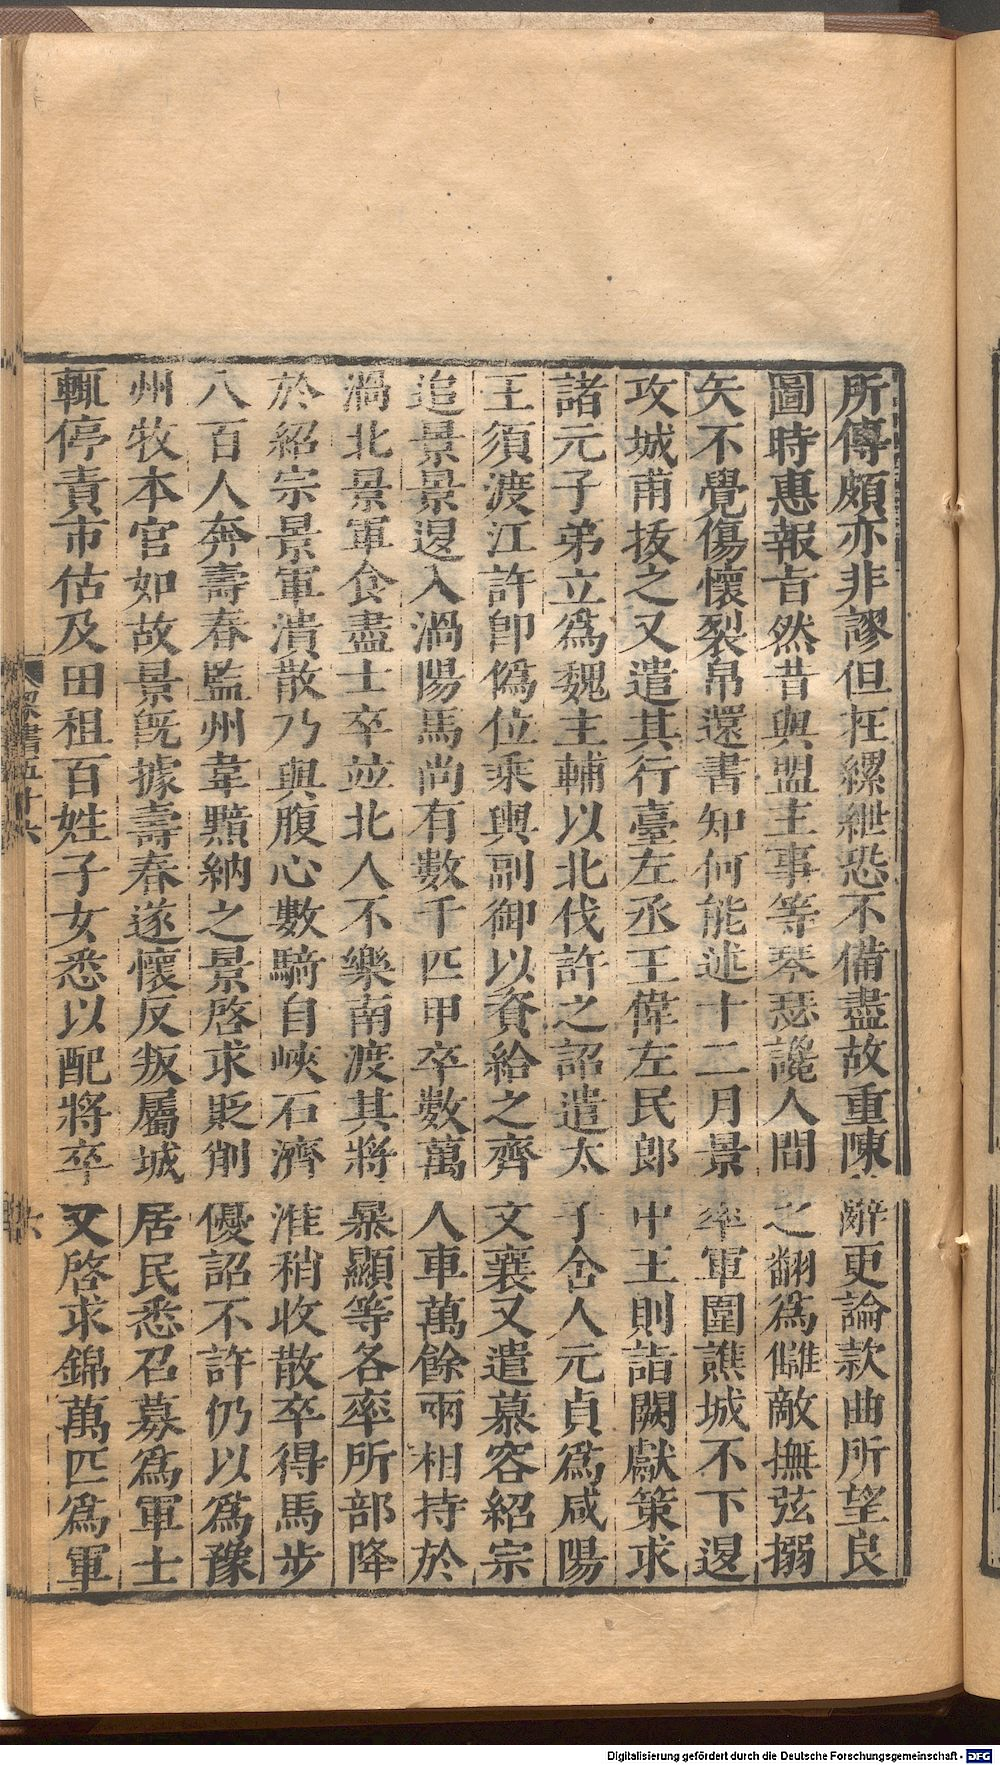 所傳頗亦非謬但在縲紲恐不備盡故重陳辭更論款曲所望良
圖時惠報旨然昔與盟主事等琴瑟讒人間之翻爲讎敵撫弦搦
矢不覺傷懷裂帛還書知何能述十二月景率軍圍譙城不下退
攻城甫拔之又遣其行臺左丞王偉左民郎中王則詣闕獻策求
諸元子弟立爲魏主輔以北伐許之詔遣太子舍人元貞爲咸陽
王須渡江許卽僞位乘輿副御以資給之齊文襄又遣慕容紹宗
追景景退入渦陽馬尚有數千匹甲卒數萬人車萬餘兩相持於
渦北景軍食盡士卒並北人不樂南渡其將暴顯等各率所部降
於紹宗景軍潰散乃與腹心數騎自峽石濟淮稍收散卒得馬步
八百人奔壽春監州韋黯納之景啓求貶削優詔不許仍以爲豫
州牧本官如故景旣據壽春遂懷反叛屬城居民悉召募爲軍士
輒停責市估及田租百姓子女悉以配將卒又啓求錦萬匹爲軍
梁書五十六
六
Digitalisierung gefördert durch die Deutsche Forschungsgemeinschaft - DFG